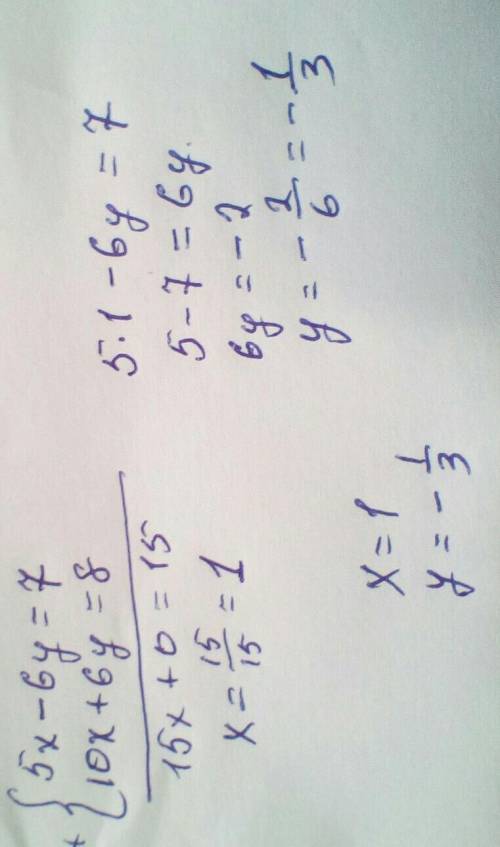 + { 5x - 6y = 7
10x + 6y = 8
15x + 0 = 15
x = 15/15 = 1
5·1 - 6y = 7
5 - 7 = 6y
6y = -2
y = -2/6 = -1/3
x = 1
y = -1/3